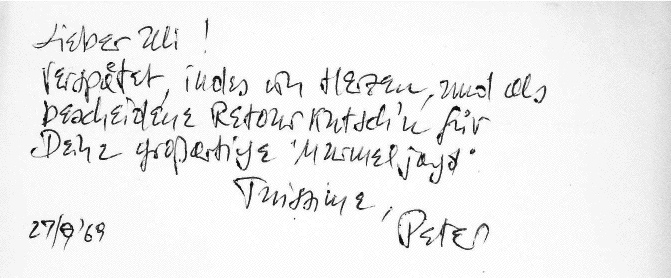 Lieber Uli!
Verspätet, indes von Herzen, und als
bescheidene Retourkutsch'n für
Deine großartige 'Murmeljagd'
Tuissime,
Peter
27/9/'69